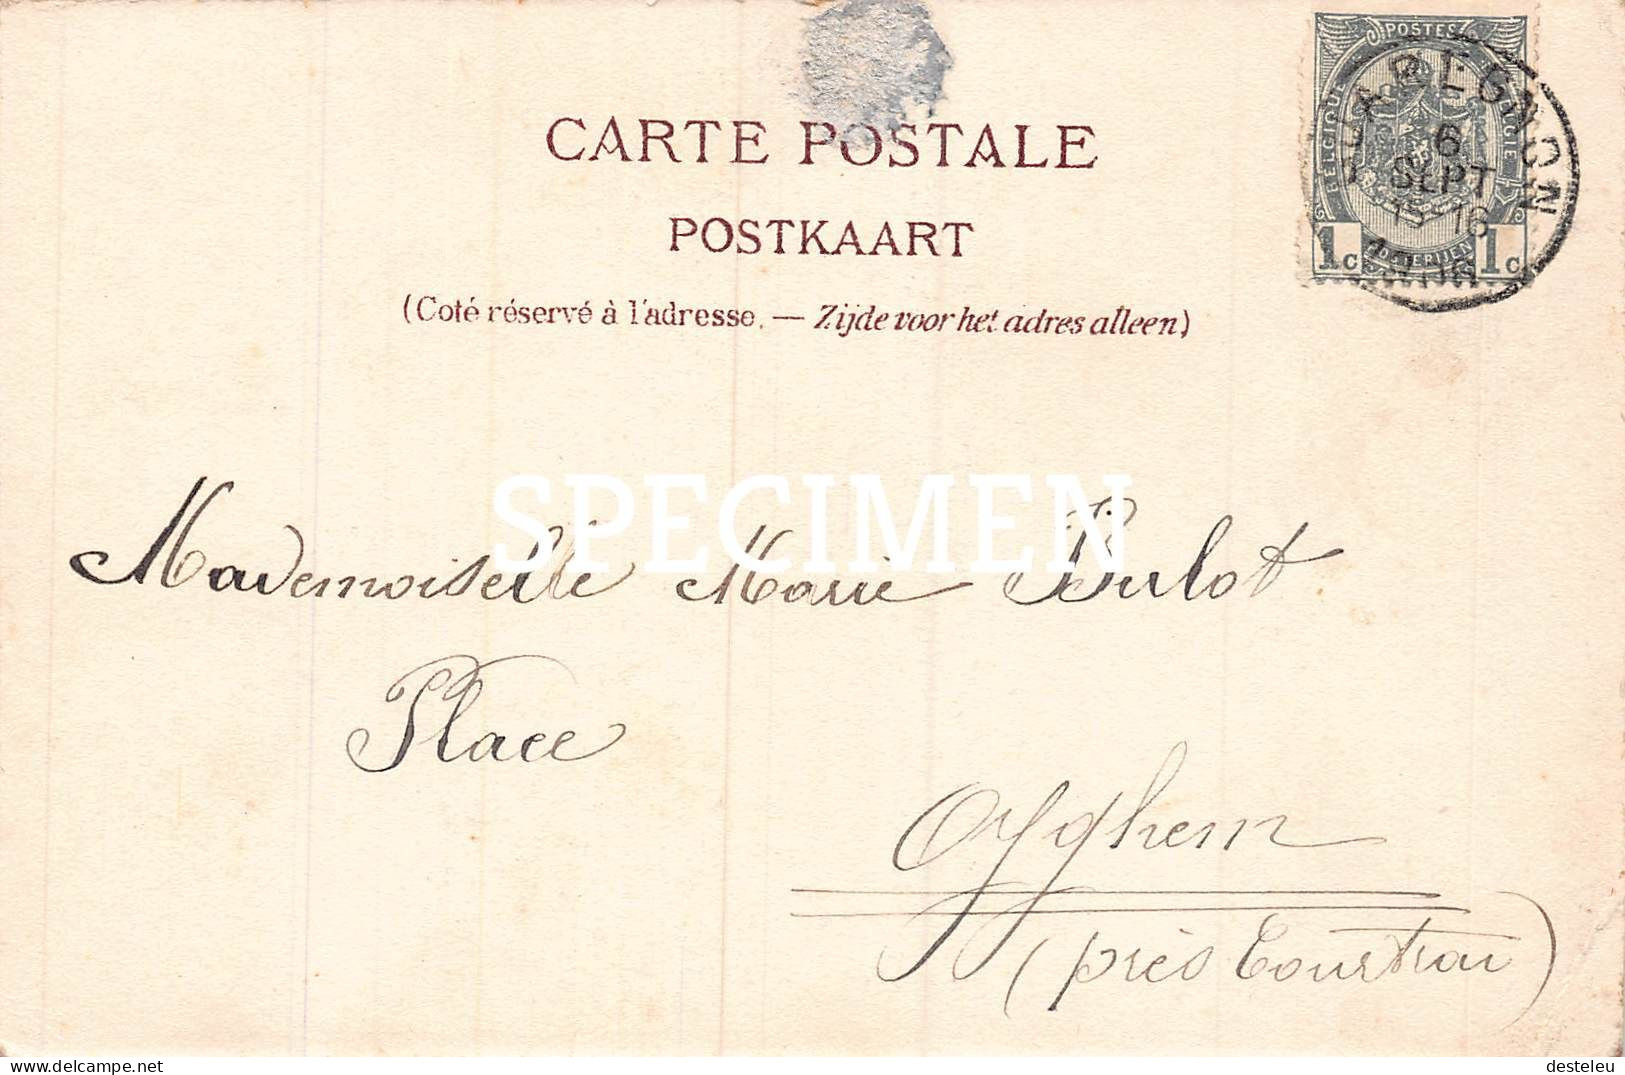 CARTE POSTALE
POSTKAART
(Coté réservé à l'adresse. — Zijde voor het adres alleen)
POSTES
BELGIQUE BELGIE
POSTERIJEN
1c 1c
QUAREGNON
6
SEPT
15-16
SPECIMEN
Mademoiselle Marie Bulot
Place
Oyghem
(près Courtrai)
desteleu